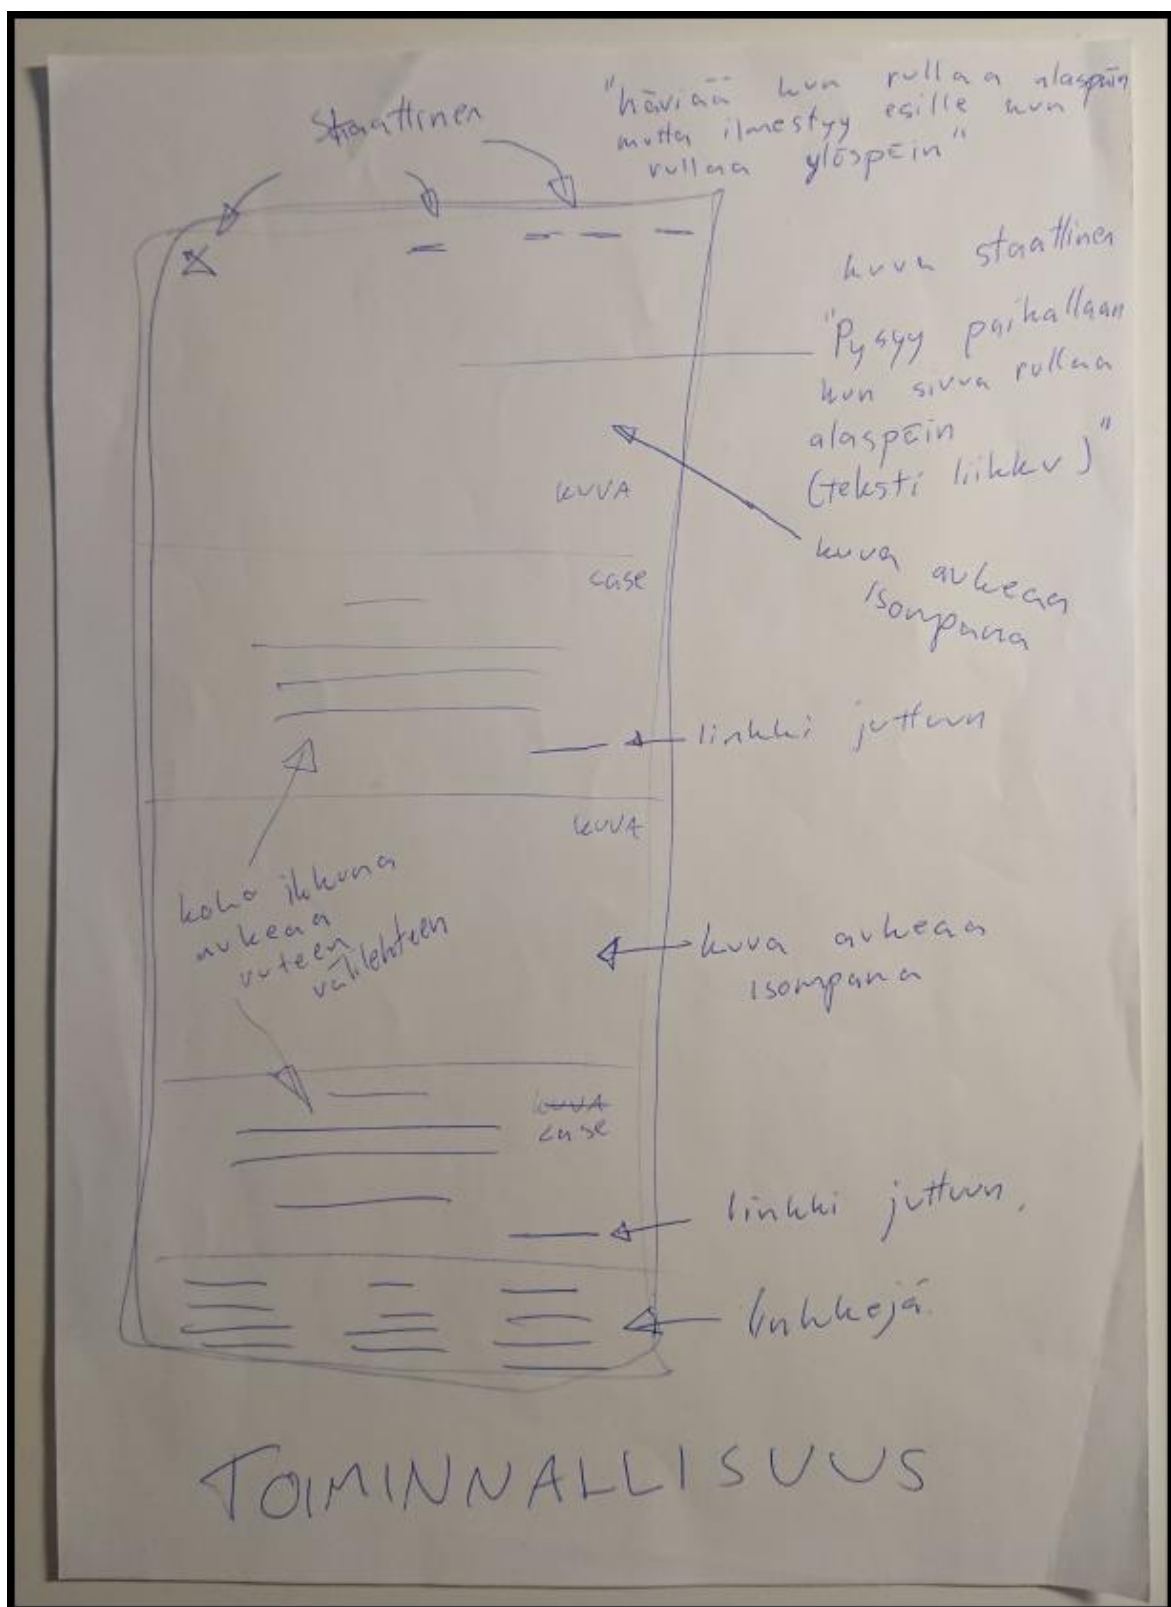 Staattinen
"häviää kun rullaa alaspäin
mutta ilmestyy esille kun
rullaa ylöspäin"
kuva staattinen
"Pysyy paikallaan
kun sivua rullaa
alaspäin
(teksti liikkuu)"
KUVA
kuva aukeaa
isompana
case
linkki juttuun
KUVA
koko ikkuna
aukeaa
uuteen
välilehteen
kuva aukeaa
isompana
KUVA
case
linkki juttuun.
linkkejä.
TOIMINNALLISUUS